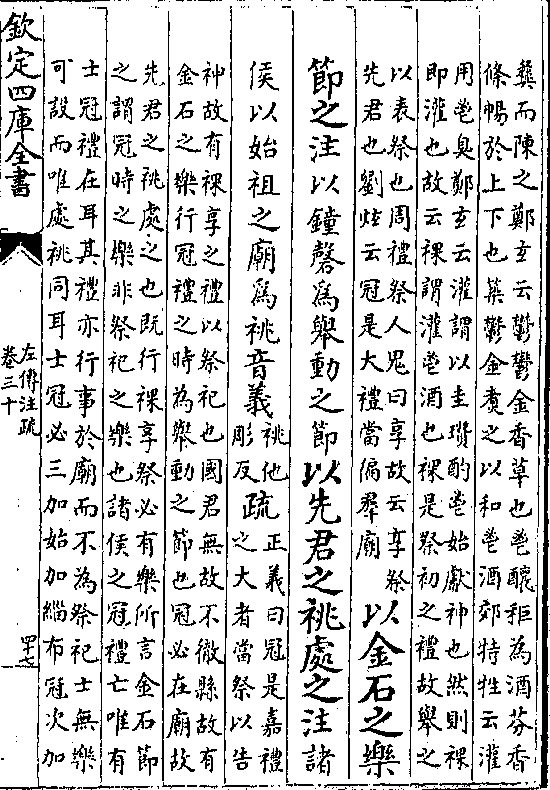 彛而陳之鄭玄云鬱鬱金香草也鬯釀秬為酒芬香
條暢於上下也築鬱金煑之以和鬯酒郊特牲云灌
用鬯臭鄭玄云灌謂以圭瓚酌鬯始獻神也然則祼
即灌也故云祼謂灌鬯酒也祼是祭初之禮故舉之
以表祭也周禮祭人鬼曰享故云享祭
先君也劉炫云冠是大禮當徧羣廟
以金石之樂
節之注以鐘磬為舉動之節以先君之祧處之注諸
侯以始祖之廟為祧音義
祧他
彫反
疏
正義曰冠是嘉禮
之大者當祭以告
神故有祼享之禮以祭祀也國君無故不徹縣故有
金石之樂行冠禮之時為舉動之節也冠必在廟故
先君之祧處之也既行祼享祭必有樂所言金石節
之謂冠時之樂非祭祀之樂也諸侯之冠禮亡唯有
士冠禮在耳其禮亦行事於廟而不為祭祀士無樂
可設而唯處祧同耳士冠必三加始加緇布冠次加
欽定四庫全書
左傳注疏
卷三十
四十七